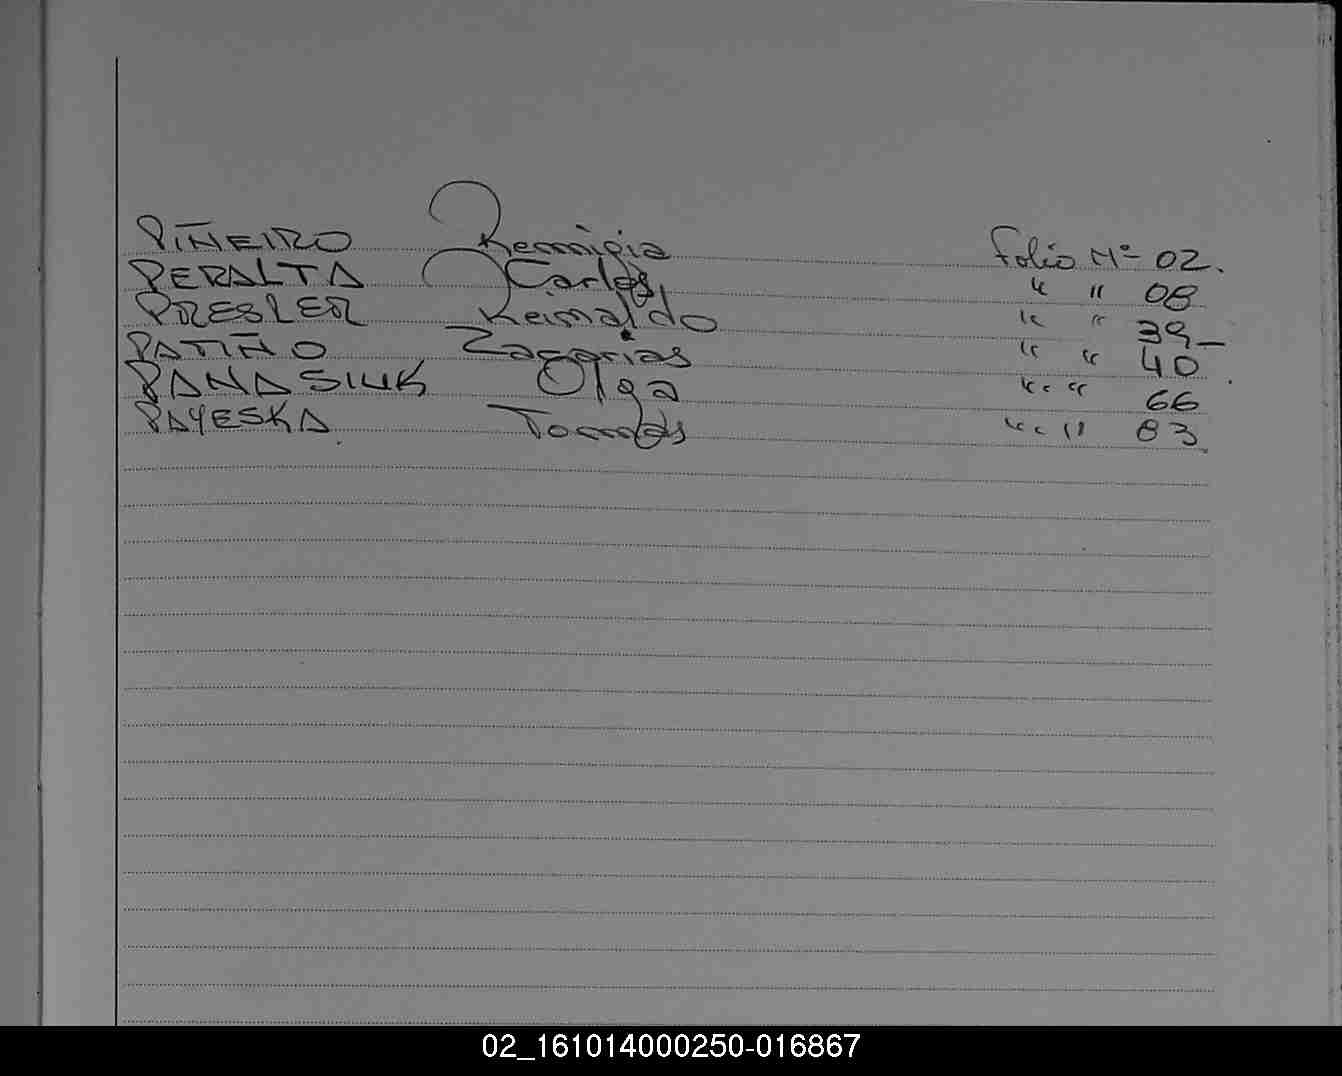 PIÑEIRO Remigia Folio Nº 02.
PERALTA Carlos, " " 08
PRESLER Reinaldo " " 39_
PATIÑO Zacarias " " 40
PANASIUK Olga " " 66
PAYESKA. Tomás " " 83.
02_161014000250-016867